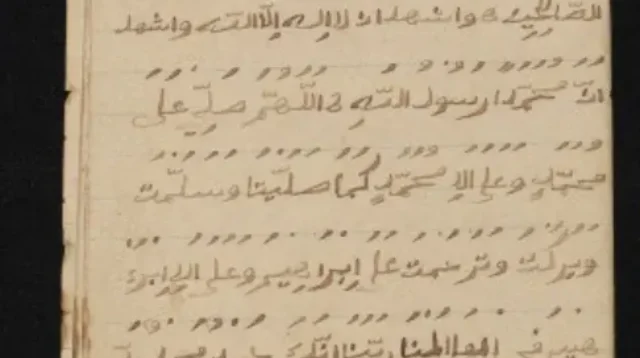 الصالحين واشهد ان لا اله الا الله واشهد
انّ محمّدا رسول اللّه اللّهمّ صلّ علی
محمّدٍ وعلى الِ محمّدٍ كما صلّيت وسلّمت
وبركت وترحمت على ابراهيم وعلى الِ ابره
هيم في العالمين